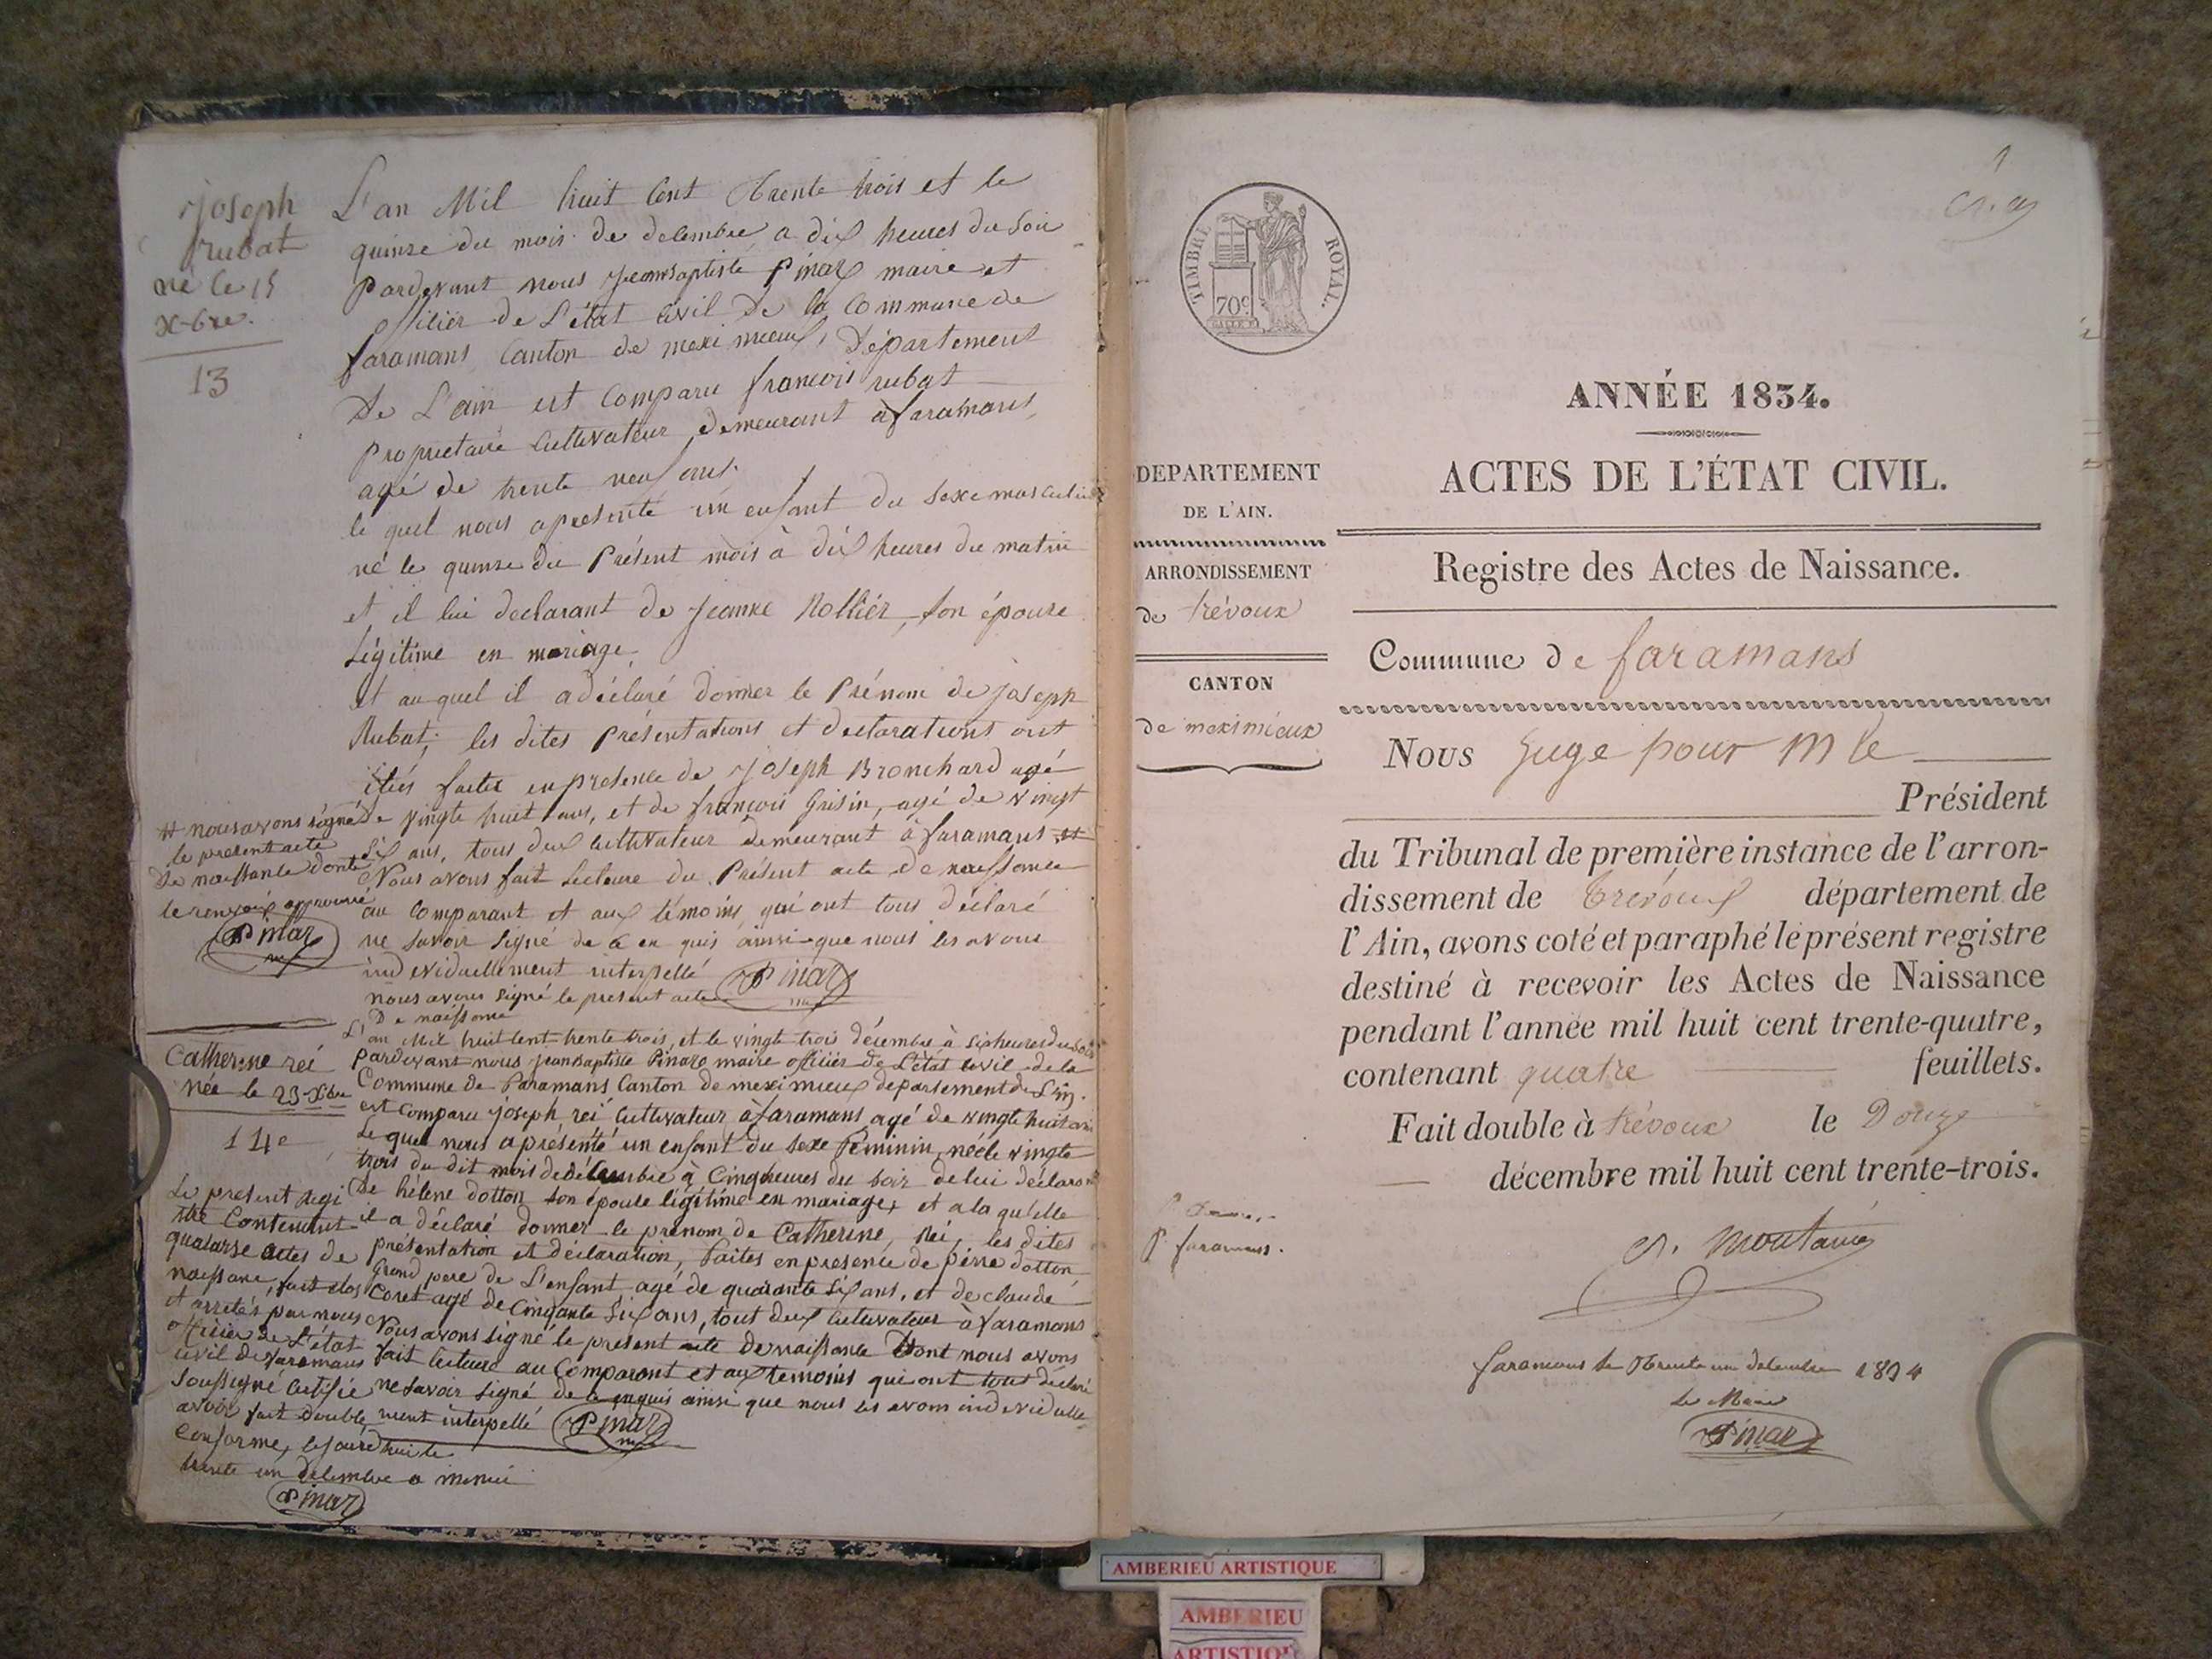 Joseph
rubat
né le 15
X-bre.
13
L'an Mil huit Cent Trente trois et le
quinze du mois de decembre a dix heures du Soir
Pardevant nous Jeanbaptiste Pinaz maire et
officier de L'état Civil de la Commune de
faramans Canton de meximieux, Département
De L'ain est Comparu françois rubat
Propriétaire Cultivateur demeurant à faramans,
agé de trente neuf ans.
le quel nous a présenté un enfant du Sexe masculin
né le quinze du Présent mois à dix heures du matin
et il lui declarant de Jeanne Rollier, Son épouse
Légitime en mariage
et au quel il a déclaré donner le Prénom de joseph
Rubat; les dites Présentations et declarations ont
étés faites en presence de Joseph Bronchard agé
de vingte huit ans, et de françois Grisin, agé de vingt
Six ans, tous deux Cultivateur demeurant à faramans et
Nous avons fait Lecture du Présent acte de naissance
au Comparant et aux témoins qui ont tous déclaré
ne Savoir Signé de ce en quis ainsi que nous les avons
individuellement interpellé Pinaz
nous avons Signé le present acte
De naissance
# nous avons signé
le present acte
De naissante donte
le renvois approuvé
Pinaz
Catherine rei
née le 23 Xbre
14e
L'an Mil huit Cent trente trois, et le vingte trois décembre à Six heures du Soir
pardevant nous Jeanbaptiste Pinaz maire officier de L'état Civil de la
Commune de Faramans Canton de meximieux département de L'in.
est Comparu joseph, rei Cultivateur à faramans agé de vingte huit ans
Le quel nous a présenté un enfant du Sexe Féminin, née le vingte
trois du dit mois de décembre à Cinq heures du Soir de lui déclarant
De hélene dotton Son épouse ligitime en mariage, et a la qu'elle
il a déclaré donner le prénom de Catherine, Rei, les dites
présentation et déclaration, Faites en presence de pierre dotton
Grand pere de L'enfant agé de quarante Six ans, et de claude
Coret agé de Cinqante Six ans, tout deux Cultivateur à faramans
Nous avons Signé le present acte de naissante Dont nous avons
fait Lecture au Comparant et aux temoins qui ont tout déclaré
ne Savoir Signé de ce enquis ainsi que nous les avons individuelle-
ment interpellé Pinaz
Le present regi
stre Contenant
quatorse actes de
naissane, fait clos
et arretés par nous
officier de L'état
Civil de faramans
Soussigné Certifie
avoir fait double
Conforme, cejourd'hui le
trente un decembre a minui
Pinaz
1
TIMBRE ROYAL.
70c
ANNÉE 1834.
ACTES DE L'ÉTAT CIVIL.
Registre des Actes de Naissance.
DEPARTEMENT
DE L'AIN.
ARRONDISSEMENT
de trévoux
CANTON
de meximieux
Commune de faramans
Nous Juge pour M le
Président
du Tribunal de première instance de l'arron-
dissement de trévoux département de
l'Ain, avons coté et paraphé le présent registre
destiné à recevoir les Actes de Naissance
pendant l'année mil huit cent trente-quatre,
contenant quatre feuillets.
Fait double à trévoux le Douze
décembre mil huit cent trente-trois.
P. faramans.
faramans le Trente un decembre 1834
Le Maire
Pinaz
AMBERIEU ARTISTIQUE
AMBERIEU
ARTISTIQUE